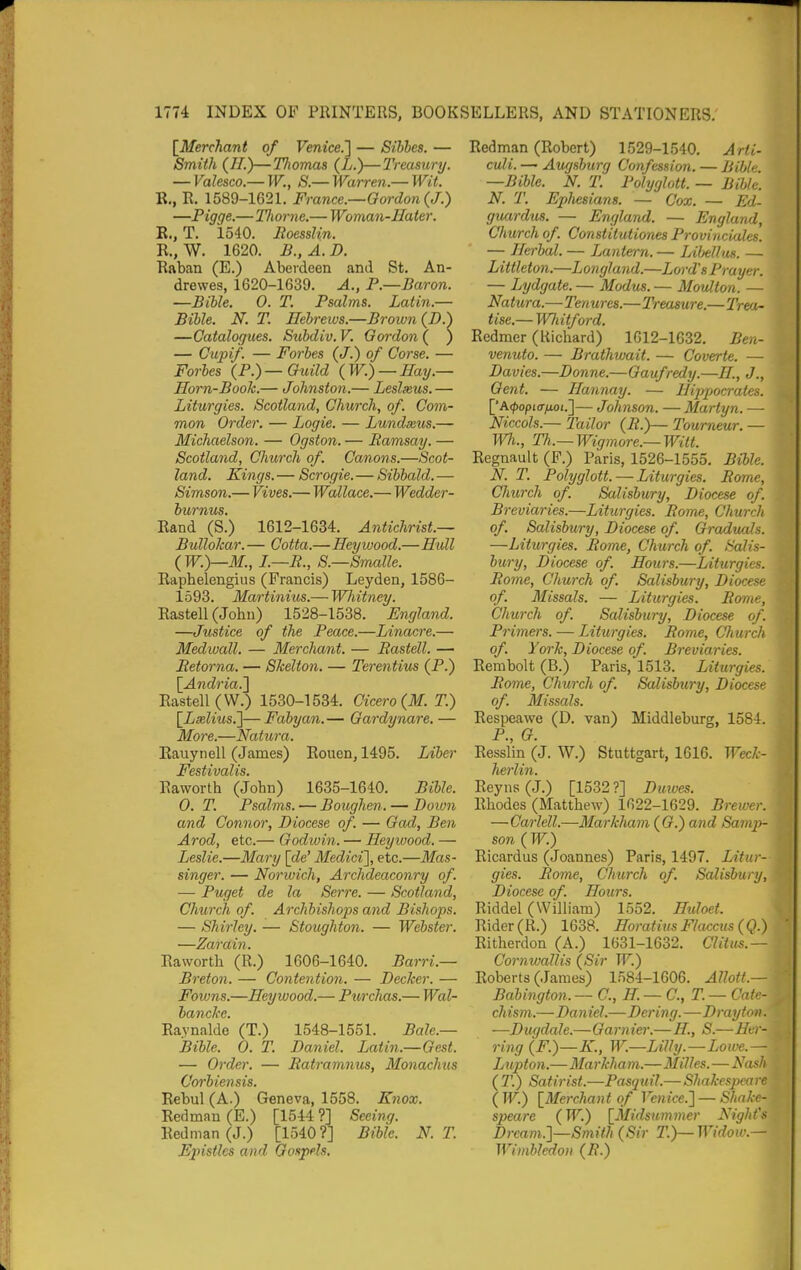 1774 INDEX OF PRINTERS, BOOKSELLERS, AND STATIONERS.
[Merchant of Venice.] — Sibbes. —
Smith (H.)—Thomas (L.)—Treasury.
— Valesco.— W., S.— Warren.— Wit.
R., R. 1589-1621. France.—Gordon (J.)
—Pigge.—Thorne.— Woman-Hater.
R., T. 1540. Roesslin.
R., W. 1620. B., A. D.
Raban (E.) Aberdeen and St. An-
drewes, 1620-1639. A., P.—Baron.
—Bible. O. T. Psalms. Latin.—
Bible. N. T. Hebrews.—Brown (D.)
—Catalogues. Subdiv. V. Gordon ( )
— Cupif. — Forbes (J.) of Corse. —
Forbes (P.) — Guild (W.) — Hay.—
Horn-Book.— Johnston.— Leslæus.—
Liturgies. Scotland, Church, of. Com-
mon Order. — Logie. — Lundæus.—
Michaelson. — Ogston. — Ramsay. —
Scotland, Church of. Canons.—Scot-
land. Kings.— Scrogie.— Sibbald.—
Simson.— Vives.— Wallace.— Wedder-
burnus.
Rand (S.) 1612-1634. Antichrist.—
Bullokar.— Cotta.—Heywood.—Hull
(W.)—M., I.—R., S.—Smalle.
Raphelengius (Francis) Leyden, 1586-
1593. Martinius.—Whitney.
Rastell (John) 1528-1538. England.
—Justice of the Peace.—Linacre.—
Medwall. — Merchant. — Rastell. —
Retorna. — Skelton. — Terentius (P.)
[Andria.]
Rastell (W.) 1530-1534. Cicero (M. T.)
[Lælius.]— Fabyan.— Gardynare. —
More.—Natura.
Rauynell (James) Rouen, 1495. Liber
Festivalis.
Raworth (John) 1635-1640. Bible.
O. T. Psalms. — Boughen. — Down
and Connor, Diocese of. — Gad, Ben
Arod, etc.— Godwin. — Heywood. —
Leslie.—Mary [de' Medici], etc.—Mas-
singer. — Norwich, Archdeaconry of.
— Puget de la Serre. — Scotland,
Church of. Archbishops and Bishops.
— Shirley. — Stoughton. — Webster.
—Zarain.
Raworth (R.) 1606-1640. Barri.—
Breton. — Contention. — Decker. —
Fowns.—Heywood.— Purchas.— Wal-
bancke.
Raynalde (T.) 1548-1551. Bale.—
Bible. O. T. Daniel. Latin.—Gest.
— Order. — Ratramnus, Monachus
Corbiensis.
Rebul (A.) Geneva, 1558. Knox.
Redman (E.) [1544?] Seeing.
Redman (J.) [1540?] Bible. N. T.
Epistles and Gospels.
Redman (Robert) 1529-1540. Arti-
culi. — Augsburg Confession. — Bible.
—Bible. N. T. Polyglott. — Bible.
N. T. Ephesians. — Cox. — Ed-
guardus. — England. — England,
Church of. Constitutiones Provinciales.
— Herbal. — Lantern. — Libellus. —
Littleton.—Longland.—Lord's Prayer.
— Lydgate. — Modus. — Moulton. —
Natura.—Tenures.—Treasure.—Trea-
tise.— Whitford.
Redmer (Richard) 1612-1632. Ben-
venuto. — Brathwait. — Coverte. —
Davies.—Donne.—Gaufredy.—H., J.,
Gent. — Hannay. — Hippocrates.
[Ἀφορισμοι.]— Johnson. — Martyn. —
Niccols.— Tailor (R.)— Tourneur. —
Wh., Th.— Wigmore.— Witt.
Regnault (F.) Paris, 1526-1555. Bible.
N. T. Polyglott. — Liturgies. Rome,
Church of. Salisbury, Diocese of.
Breviaries.—Liturgies. Rome, Church
of. Salisbury, Diocese of. Graduals.
—Liturgies. Rome, Church of. Salis-
bury, Diocese of. Hours.—Liturgies.
Rome, Church of. Salisbury, Diocese
of. Missals. — Liturgies. Rome,
Church of. Salisbury, Diocese of.
Primers. — Liturgies. Rome, Church
of. York, Diocese of. Breviaries.
Rembolt (B.) Paris, 1513. Liturgies.
Rome, Church of. Salisbury, Diocese
of. Missals.
Respeawe (D. van) Middleburg, 1584.
P., G.
Resslin (J. W.) Stuttgart, 1616. Weck-
herlin.
Reyns (J.) [1532?] Duwes.
Rhodes (Matthew) 1622-1629. Brewer.
—Carlell.—Markham (G.) and Samp-
son (W.)
Ricardus (Joannes) Paris, 1497. Litur-
gies. Rome, Church of. Salisbury,
Diocese of. Hours.
Riddel (William) 1552. Huloet.
Rider (R.) 1638. Horatius Flaccus (Q.)
Ritherdon (A.) 1631-1632. Clitus.—
Cornwallis (Sir W.)
Roberts (James) 1584-1606. Allott.—
Babington. — C., H. — C., T. — Cate-
chism.—Daniel.—Dering.—Drayton.
—Dugdale.—Garnier.—H., S.—Her-
ring (F.)—K., W.—Lilly.—Lowe.—
Lupton.—Markham.—Milles.—Nash
(T.) Satirist.—Pasquil.—Shakespeare
(W.) [Merchant of Venice.] — Shake-
speare (W.) [Midsummer Night's
Dream.]—Smith (Sir T.)—Widow.—
Wimbledon (R.)